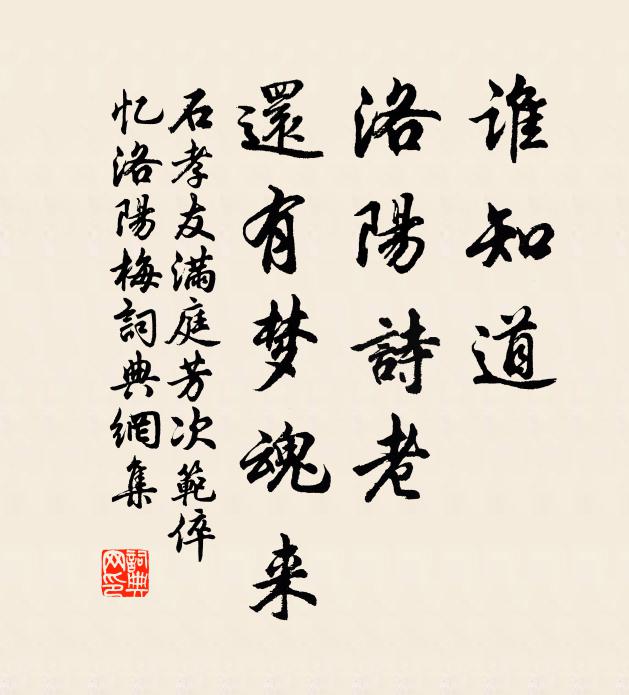 谁知道
洛陽詩老
還有梦魂来
石孝友滿庭芳次範倅
忆洛陽梅詞典網集
詞典
网印